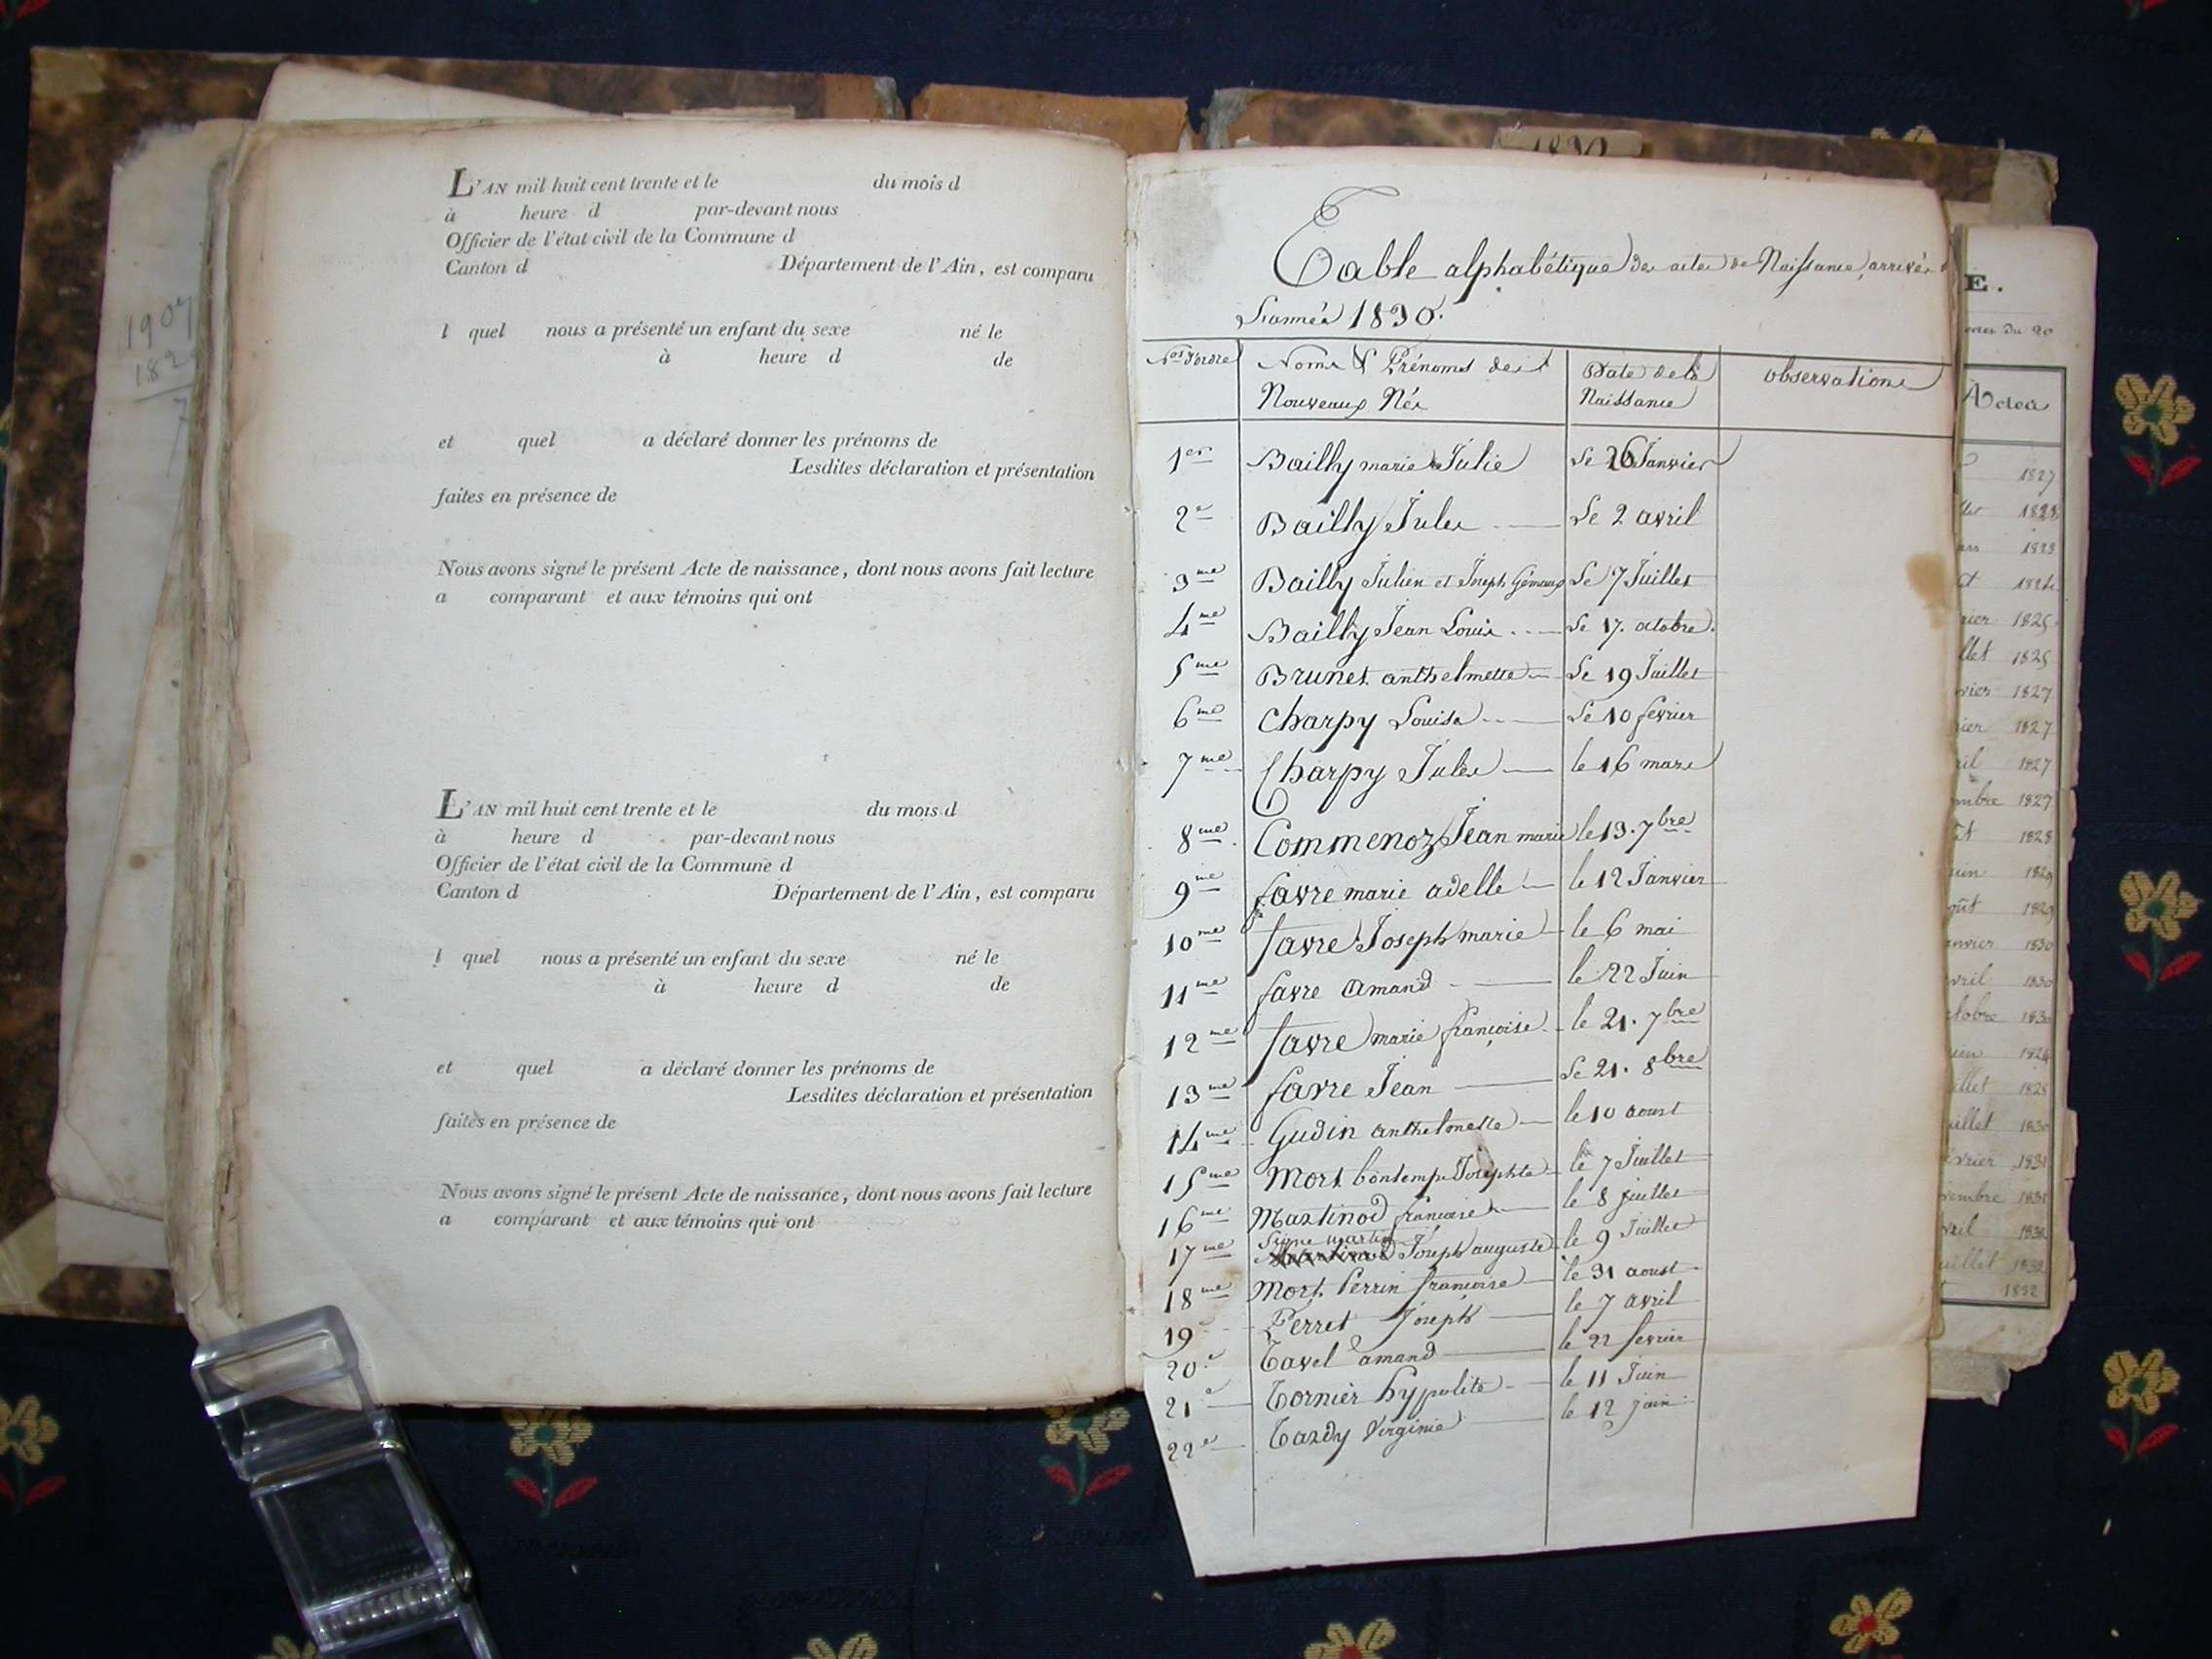 L'AN mil huit cent trente et le du mois d
à heure d par-devant nous
Officier de l'état civil de la Commune d
Canton d Département de l'Ain, est comparu
l quel nous a présenté un enfant du sexe né le
à heure d de
et quel a déclaré donner les prénoms de
Lesdites déclaration et présentation
faites en présence de
Nous avons signé le présent Acte de naissance, dont nous avons fait lecture
a comparant et aux témoins qui ont
L'AN mil huit cent trente et le du mois d
à heure d par-devant nous
Officier de l'état civil de la Commune d
Canton d Département de l'Ain, est comparu
l quel nous a présenté un enfant du sexe né le
à heure d de
et quel a déclaré donner les prénoms de
Lesdites déclaration et présentation
faites en présence de
Nous avons signé le présent Acte de naissance, dont nous avons fait lecture
a comparant et aux témoins qui ont
1907
182
7
7
1830
Table alphabétique des actes de Naissance, arrivés
L'année 1830.
Nos d'ordre Noms & Prénoms des Date de la observations
Nouveaux Nés Naissance
1er Bailly marie Julie Le 26 Janvier
2e Bailly Jules Le 2 avril
3me Bailly Julien et Joseph Gémeaux Le 7 Juillet
4me Bailly Jean Louis Le 17. octobre.
5me Brunet anthelmette Le 19 Juillet
6me Charpy Louise Le 10 fevrier
7me Charpy Jules le 16 mars
8me Commenoz Jean marie le 13. 7bre
9me favre marie adelle le 12 Janvier
10me favre Joseph marie le 6 mai
11me favre amand le 22 Juin
12me favre marie françoise le 21. 7bre
13me favre Jean Le 21. 8bre
14me Gudin anthelmette le 10 aoust
15me Mort. bontemps Josephte le 7 Juillet
16me Martinod francoise le 8 juillet
17me Joseph auguste le 9 Juillet
18me Mort. Perrin francoise le 31 aoust
19e Perret Joseph le 7 avril
20e Tavel amand le 22 fevrier
21e Tornier hypolite le 11 Juin
22e Tardy Virginie le 12 juin
E.
Actes
1827
1828
1823
1824
1825
llet 1825
vier 1827
1827
ril 1827
mbre 1827
1828
uin 1829
oût 1829
anvier 1830
vril 1830
ctobre 1830
uin 1824
uillet 1828
uillet 1830
évrier 1831
vembre 1831
vril 1832
uillet 1832
1832